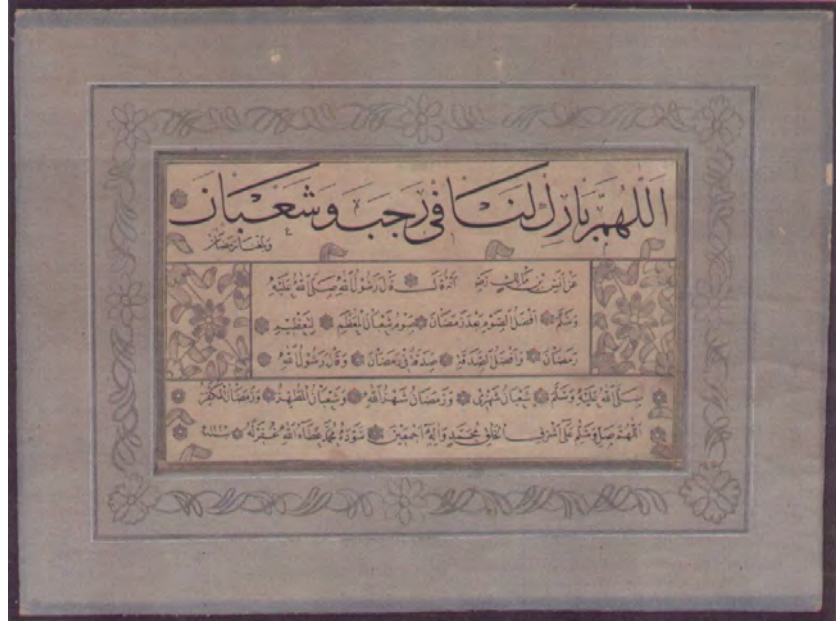 اللهم بارك لنا فى رجب وشعبان
وبلغنا رمضان
عن انس بن مالك رضى انه قال قال رسول الله صلى الله عليه
وسلم افضل الصوم بعد رمضان صوم شعبان المعظم لتعظيم
رمضان وافضل الصدقة صدقة فى رمضان وقال رسول الله
صلى الله عليه وسلم شعبان شهرى ورمضان شهر الله وشعبان المطهر ورمضان المكفر
اللهم صل وسلم على اشرف الخلق محمد واله اجمعين سوده محمد عطاء الله غفر له